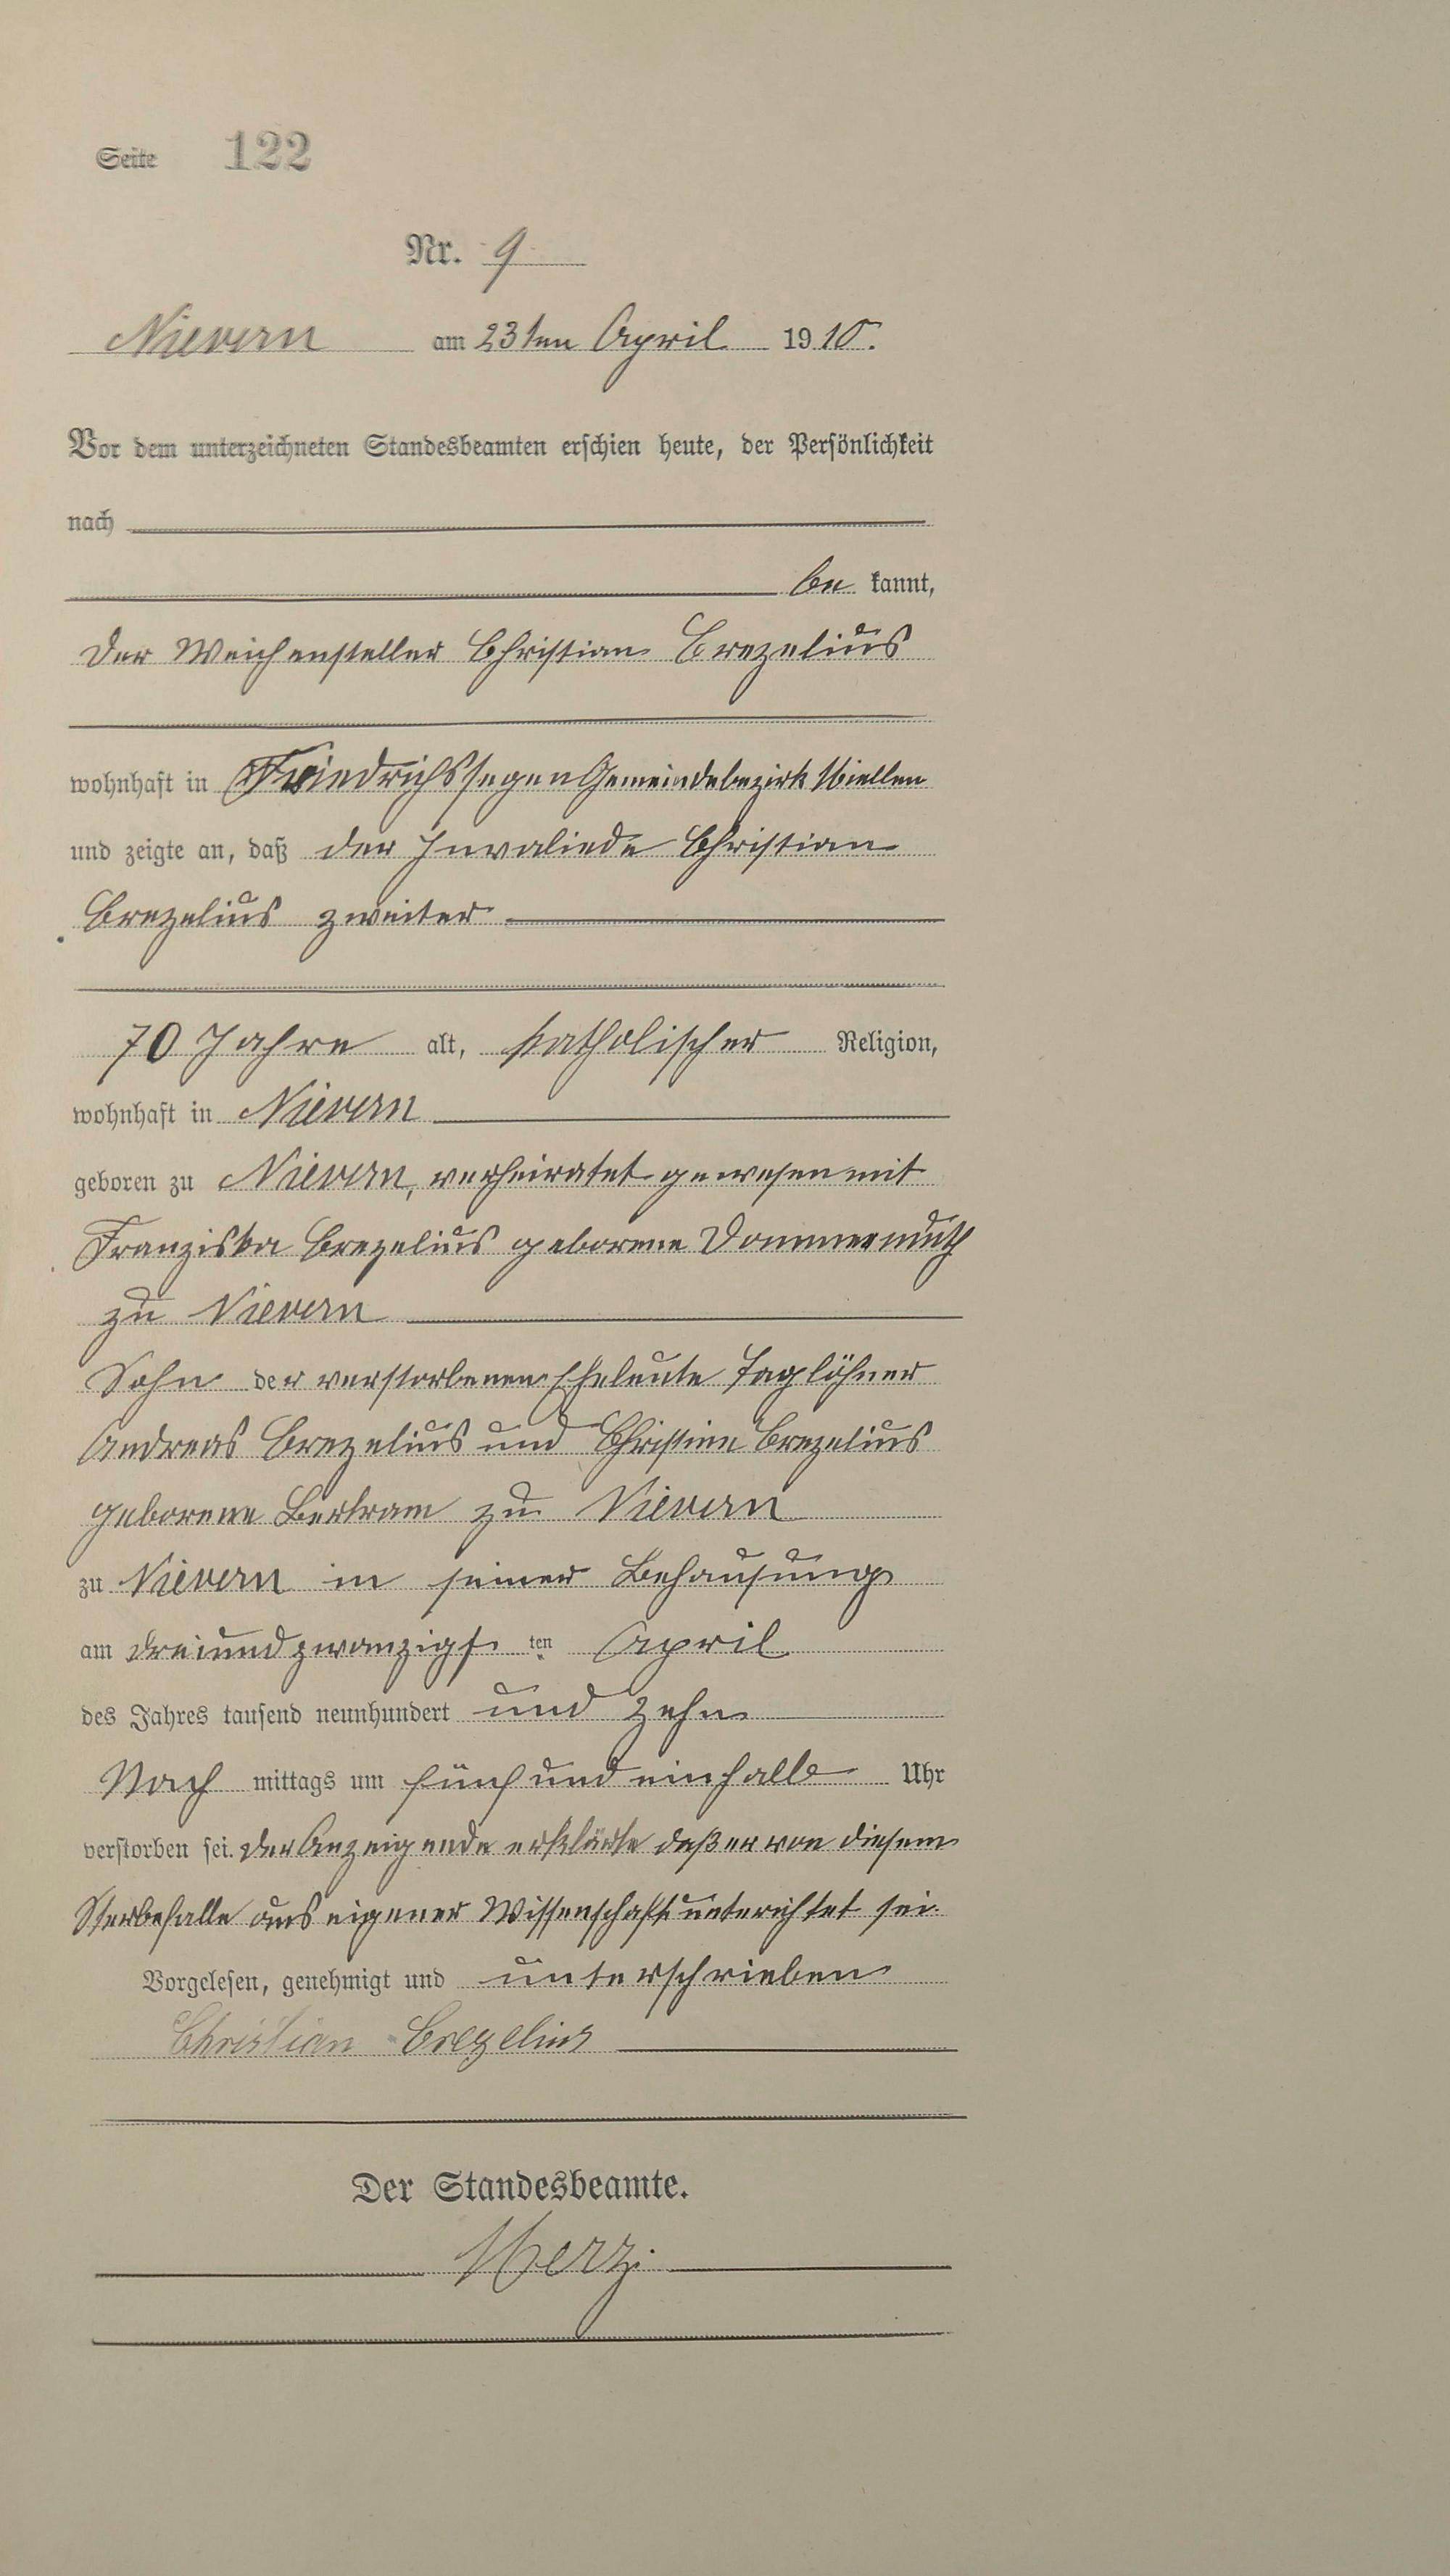 Seite 122
Nr. 9
Nievern am 23ten April 1910.
Vor dem unterzeichneten Standesbeamten erschien heute, der Persönlichkeit
nach
be kannt,
der Weichensteller Christian Crezelius
wohnhaft in Friedrichssegen Gemeindebezirk Miellen
und zeigte an, daß der Invaliede Christian
Crezelius zweiter
70 Jahre alt, katholischer Religion,
wohnhaft in Nievern
geboren zu Nievern, verheiratet gewesen mit
Franziska Crezelius geborene Dommermuth
zu Nievern
Sohn der verstorbenen Eheleute Taglöhner
Andreas Crezelius und Christine Crezelius
geborene Bertram zu Nievern
zu Nievern in seiner Behausung
am dreiundzwanzigs ten April
des Jahres tausend neunhundert und zehn
Nach mittags um fünf und einhalb Uhr
verstorben sei. Der Anzeigende erklärte daß er von diesem
Sterbefalle aus eigener Wissenschaft unterichtet sei.
Vorgelesen, genehmigt und unterschrieben
Christian Crezelius
Der Standesbeamte.
Merz